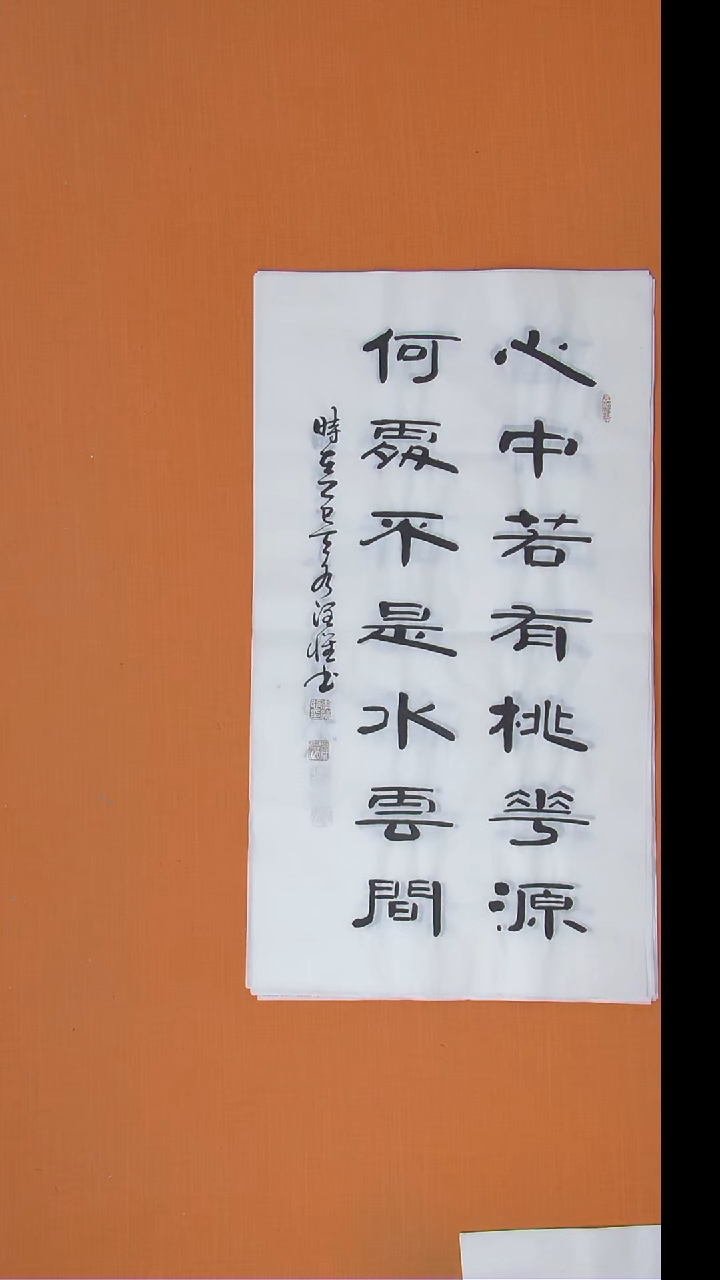 心中若有桃花源
何處不是水雲間
時在乙巳
書